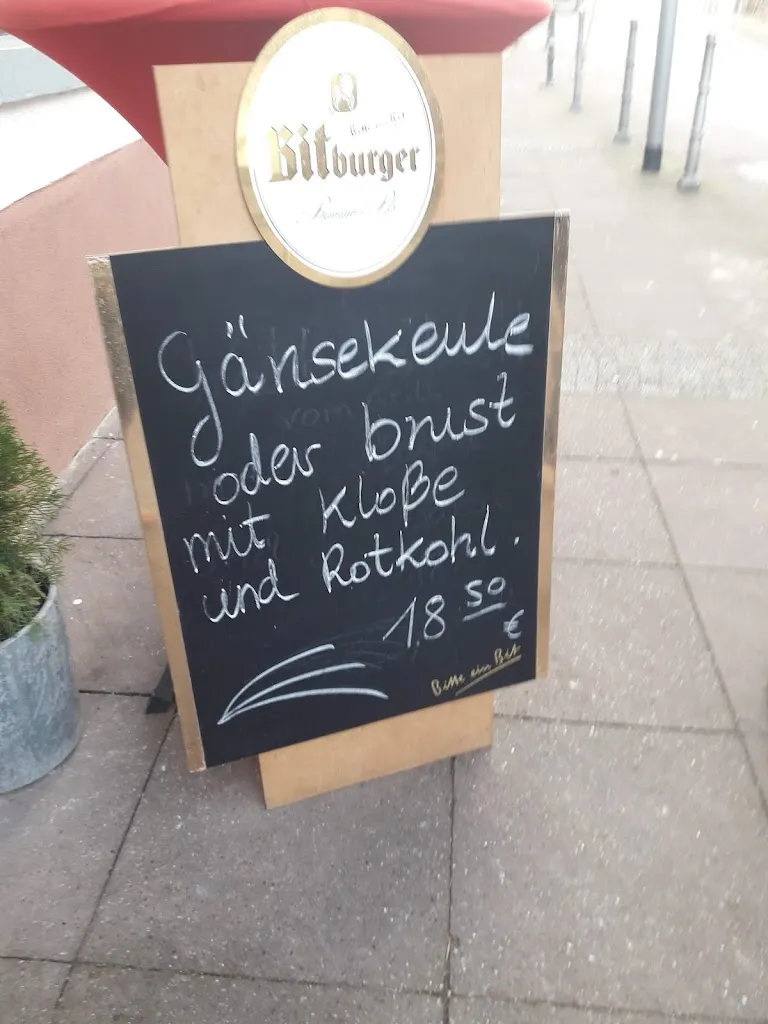 Bitte ein Bit
Bitburger
Premium Pils
Gänsekeule
oder brust
mit Kloße
und Rotkohl.
18 50
€
Bitte ein Bit